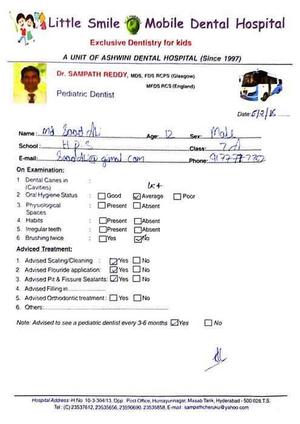 Little Smile Mobile Dental Hospital
Exclusive Dentistry for kids
A UNIT OF ASHWINI DENTAL HOSPITAL (Since 1997)
Dr. SAMPATH REDDY, MDS, FDS RCPS (Glasgow)
MFDS RCS (England)
Pediatric Dentist
Date:
Name: Md Age: 12 Sex: Male
School: H.P.S Class:
E-mail: @gmail.com Phone:
On Examination:
1 Dental Caries in
(Cavities)
2 Oral Hygiene Status : Good Average Poor
3. Physiological : Present Absent
Spaces
4. Habits : Present Absent
5. Irregular teeth : Present Absent
6 Brushing twice : Yes No
Adviced Treatment:
1 Advised Scaling/Cleaning : Yes No
2 Advised Flouride application: Yes No
3. Advised Pit & Fissure Sealants: Yes No
4. Advised Filling in
5. Advised Orthodontic treatment : Yes No
6. Others:
Note: Advised to see a pediatric dentist every 3-6 months Yes No
Hospital Address: H.No. 10-3-304/13, Opp. Post Office, Humayunnagar, Masab Tank, Hyderabad - 500 028.T.S.
Tel: (C) 23537612, 23535656, 23590690, 23535858, E-mail: sampathcheruku@yahoo.com